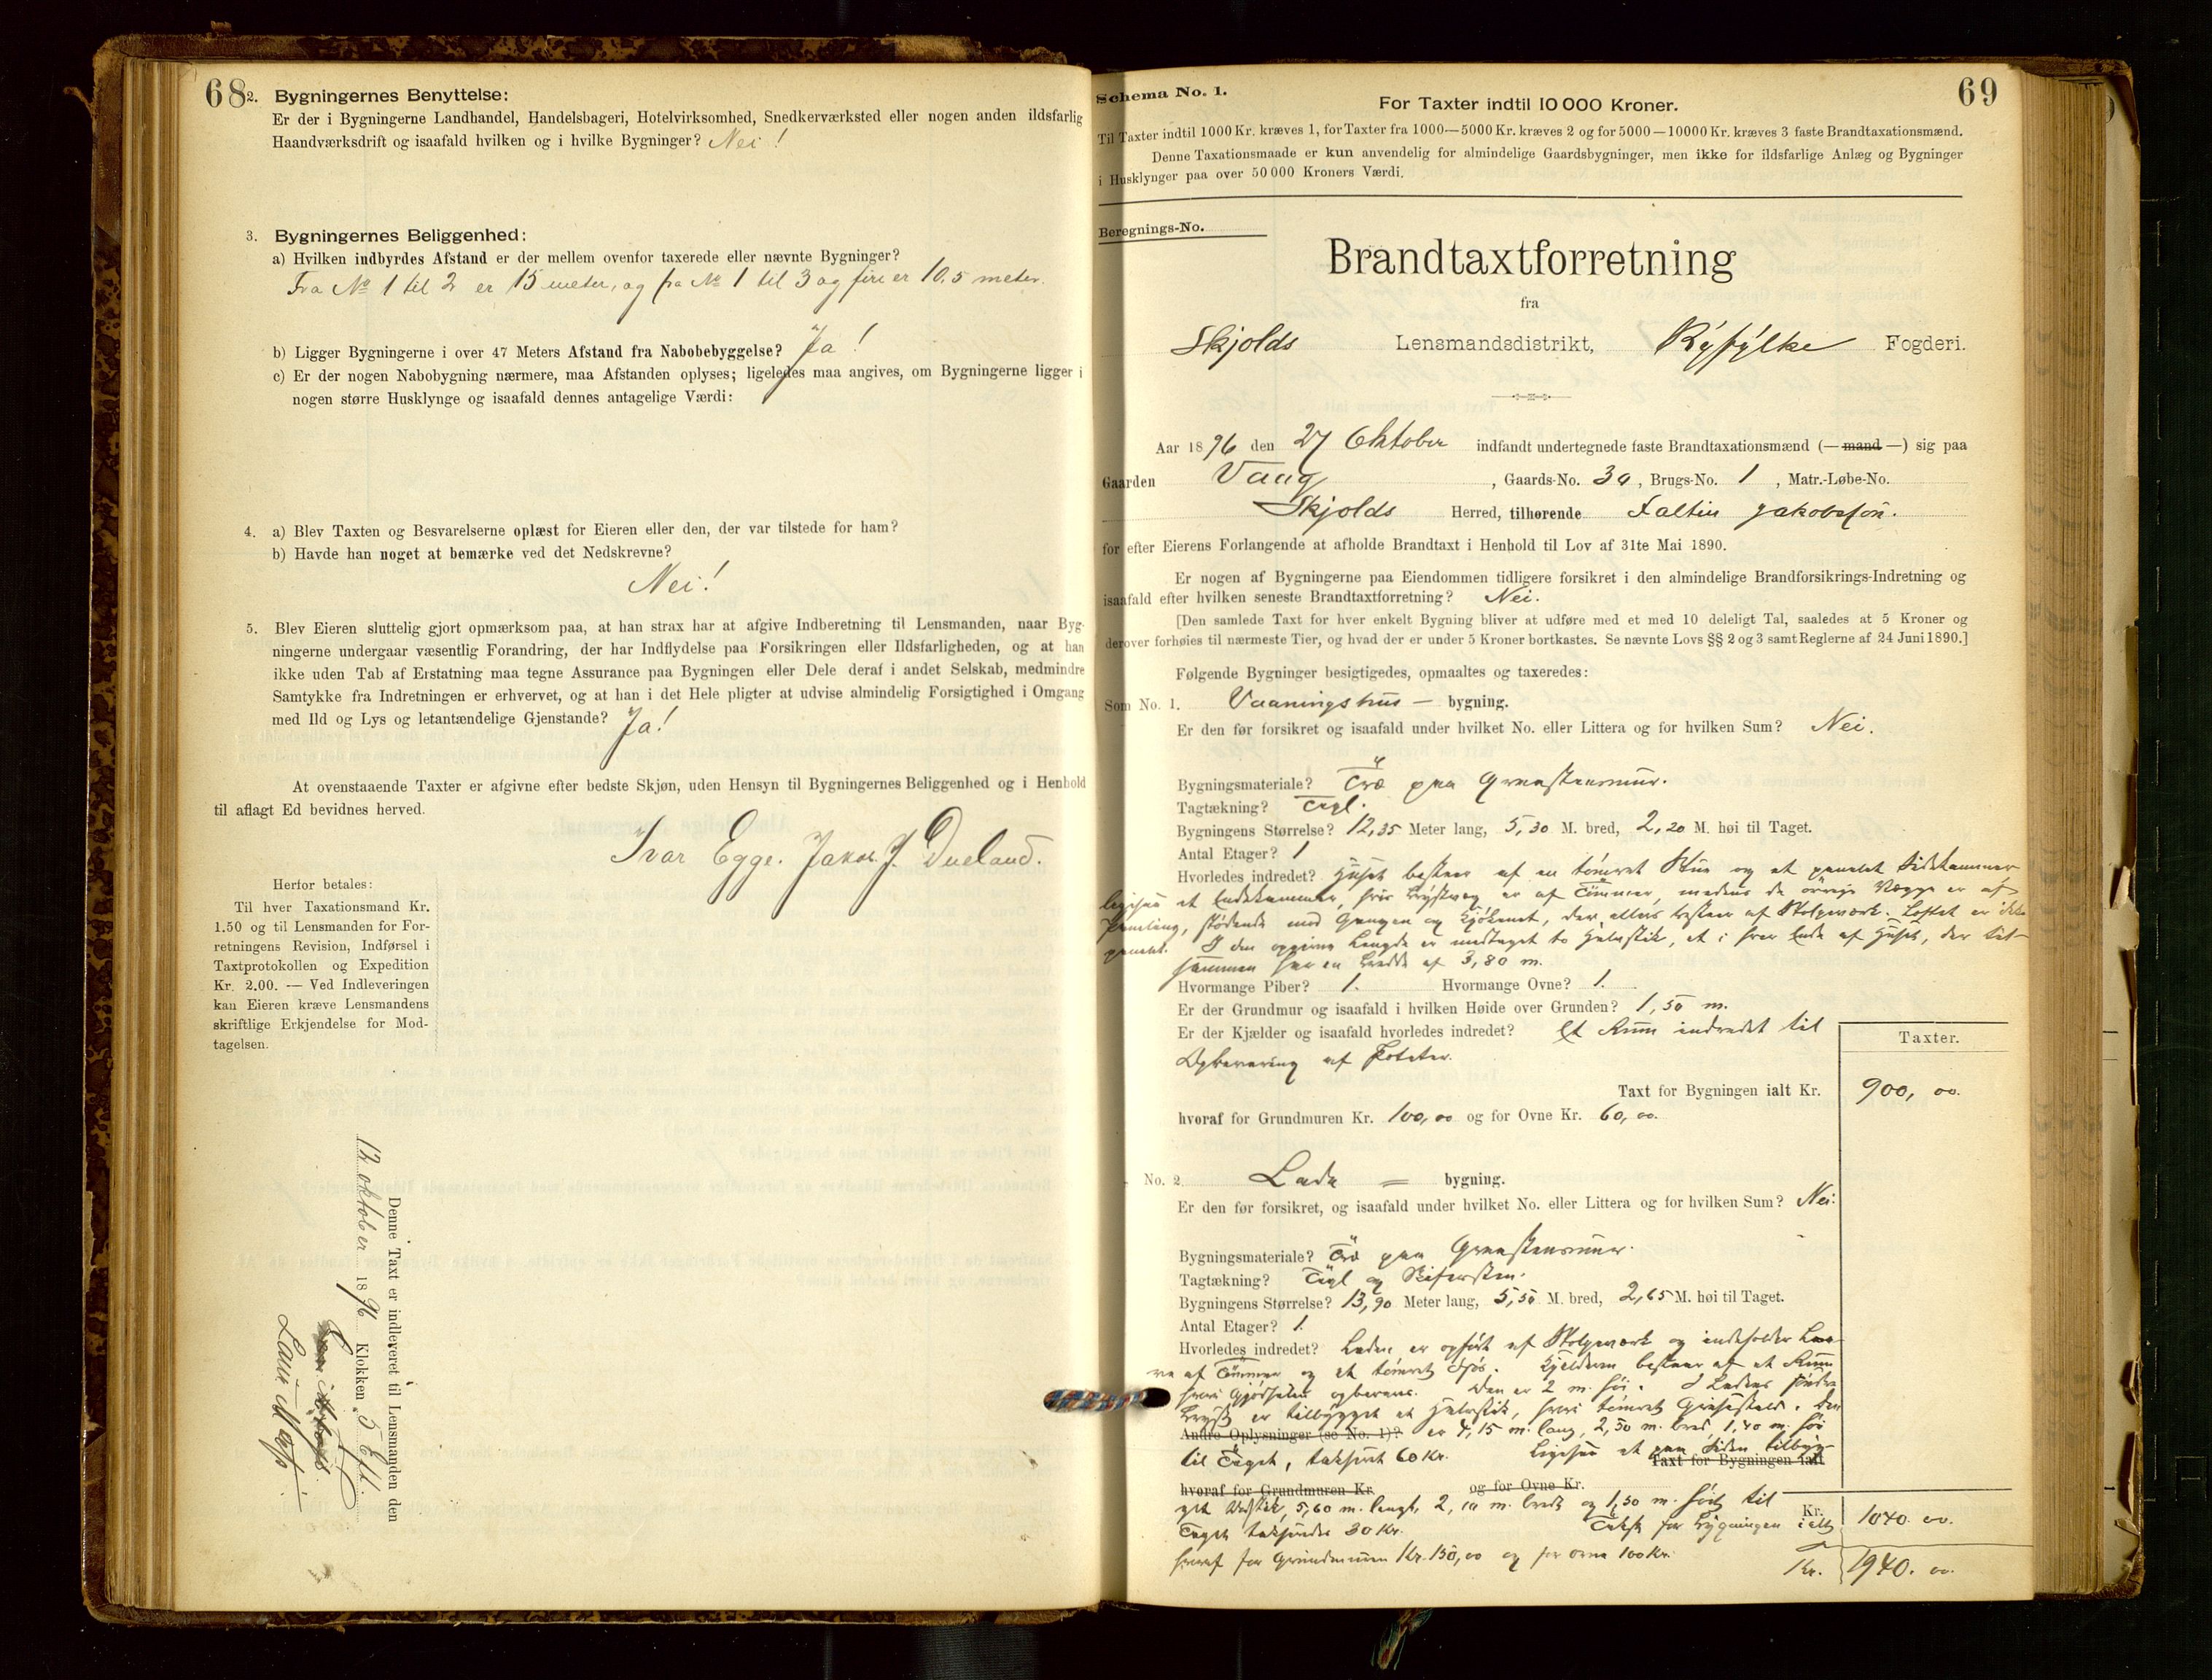 68
2. Bygningernes Benyttelse:
Er der i Bygningerne Landhandel, Handelsbageri, Hotelvirksomhed, Snedkerværksted eller nogen anden ildsfarlig
Haandværksdrift og isaafald hvilken og i hvilke Bygninger? Nei!
3. Bygningernes Beliggenhed:
a) Hvilken indbyrdes Afstand er der mellem ovenfor taxerede eller nævnte Bygninger?
Fra No 1 til 2 er 15 meter, og fra No 1 til 3 og fire er 10,5 meter.
b) Ligger Bygningerne i over 47 Meters Afstand fra Nabobebyggelse? Ja!
c) Er der nogen Nabobygning nærmere, maa Afstanden oplyses; ligeledes maa angives, om Bygningerne ligger i
nogen større Husklynge og isaafald dennes antagelige Værdi:
4. a) Blev Taxten og Besvarelserne oplæst for Eieren eller den, der var tilstede for ham?
b) Havde han noget at bemærke ved det Nedskrevne?
Nei!
5. Blev Eieren sluttelig gjort opmærksom paa, at han strax har at afgive Indberetning til Lensmanden, naar Byg-
ningerne undergaar væsentlig Forandring, der har Indflydelse paa Forsikringen eller Ildsfarligheden, og at han
ikke uden Tab af Erstatning maa tegne Assurance paa Bygningen eller Dele deraf i andet Selskab, medmindre
Samtykke fra Indretningen er erhvervet, og at han i det Hele pligter at udvise almindelig Forsigtighed i Omgang
med Ild og Lys og letantændelige Gjenstande? Ja!
At ovenstaaende Taxter er afgivne efter bedste Skjøn, uden Hensyn til Bygningernes Beliggenhed og i Henhold
til aflagt Ed bevidnes herved.
Ivar Egge. Jakob J. Dueland.
Herfor betales:
Til hver Taxationsmand Kr.
1.50 og til Lensmanden for For-
retningens Revision, Indførsel i
Taxtprotokollen og Expedition
Kr. 2.00. — Ved Indleveringen
kan Eieren kræve Lensmandens
skriftlige Erkjendelse for Mod-
tagelsen.
Denne Taxt er indleveret til Lensmanden den
12 oktober 1896 Klokken 5 Eft.
69
Schema No. 1.
For Taxter indtil 10 000 Kroner.
Til Taxter indtil 1000 Kr. kræves 1, for Taxter fra 1000—5000 Kr. kræves 2 og for 5000—10000 Kr. kræves 3 faste Brandtaxationsmænd.
Denne Taxationsmaade er kun anvendelig for almindelige Gaardsbygninger, men ikke for ildsfarlige Anlæg og Bygninger
i Husklynger paa over 50 000 Kroners Værdi.
Beregnings-No.
Brandtaxtforretning
fra
Skjolds Lensmandsdistrikt, Ryfylke Fogderi.
Aar 1896 den 27 Oktober indfandt undertegnede faste Brandtaxationsmænd (— mand —) sig paa
Gaarden Vaag, Gaards-No. 30, Brugs-No. 1, Matr.-Løbe-No.
Skjolds Herred, tilhørende Faltin Jakobsøn.
for efter Eierens Forlangende at afholde Brandtaxt i Henhold til Lov af 31te Mai 1890.
Er nogen af Bygningerne paa Eiendommen tidligere forsikret i den almindelige Brandforsikrings-Indretning og
isaafald efter hvilken seneste Brandtaxtforretning? Nei.
[Den samlede Taxt for hver enkelt Bygning bliver at udføre med et med 10 deleligt Tal, saaledes at 5 Kroner og
derover forhøies til nærmeste Tier, og hvad der er under 5 Kroner bortkastes. Se nævnte Lovs §§ 2 og 3 samt Reglerne af 24 Juni 1890.]
Følgende Bygninger besigtigedes, opmaaltes og taxeredes:
Som No. 1. Vaaningshus — bygning.
Er den før forsikret og isaafald under hvilket No. eller Littera og for hvilken Sum? Nei.
Bygningsmateriale? Træ paa Graastensmur.
Tagtækning? Tegl.
Bygningens Størrelse? 12,35 Meter lang, 5,30 M. bred, 2,20 M. høi til Taget.
Antal Etager? 1
Hvorledes indredet? Huset bestaar af en tømret Stue og et panelet Sidekammer
ligesaa et Endekammer, hvis Brystvæg er af Tømmer, medens de øvrige Vægge er af
Paneling, stødende mod Gangen og Kjøkenet, der ellers bestaar af Stolpeværk. Loftet er ikke
panelet. I den opgivne Længde er medtaget to Halvstik, et i hver Ende af Huset, der til-
sammen har en Bredde af 3,80 m.
Hvormange Piber? 1. Hvormange Ovne? 1.
Er der Grundmur og isaafald i hvilken Høide over Grunden? 1,50 m.
Er der Kjælder og isaafald hvorledes indredet? Et Rum indredet til
Opbevaring af Poteter.
Taxter.
Taxt for Bygningen ialt Kr. 900,00.
hvoraf for Grundmuren Kr. 100,00 og for Ovne Kr. 60,00.
No. 2 Lade = bygning.
Er den før forsikret, og isaafald under hvilket No. eller Littera og for hvilken Sum? Nei.
Bygningsmateriale? Træ paa Graastensmur.
Tagtækning? Tegl og Skifersten.
Bygningens Størrelse? 13,90 Meter lang, 5,50 M. bred, 2,65 M. høi til Taget.
Antal Etager? 1.
Hvorledes indredet? Laden er opført af Stolpeværk og indeholder Laa-
ve af Tømmer og et tømret Fjøs. Kjelderen bestaar af et Rum
hvori Gjødselen opbevares. Den er 2 m. høi. I Ladens søndre
Bryst er tilbygget et Halvstik, hvori tømret Grisestald. Den
Andre Oplysninger (se No. 1)? er 4,15 m. lang, 2,50 m. bred, 1,40 m. høi
til Taget, taxeret 60 Kr. Ligesaa et paa Siden tilbyg-
Taxt for Bygningen ialt
hvoraf for Grundmuren Kr. og for Ovne Kr.
get 5,60 m. langt, 2,10 m. bredt og 1,50 m. høit til
Taget 30 Kr. Takst for Bygningen ialt Kr. 1040.00.
hvoraf for Grundmuren Kr. 150,00 og for 100 Kr.
Kr. 1940.00.